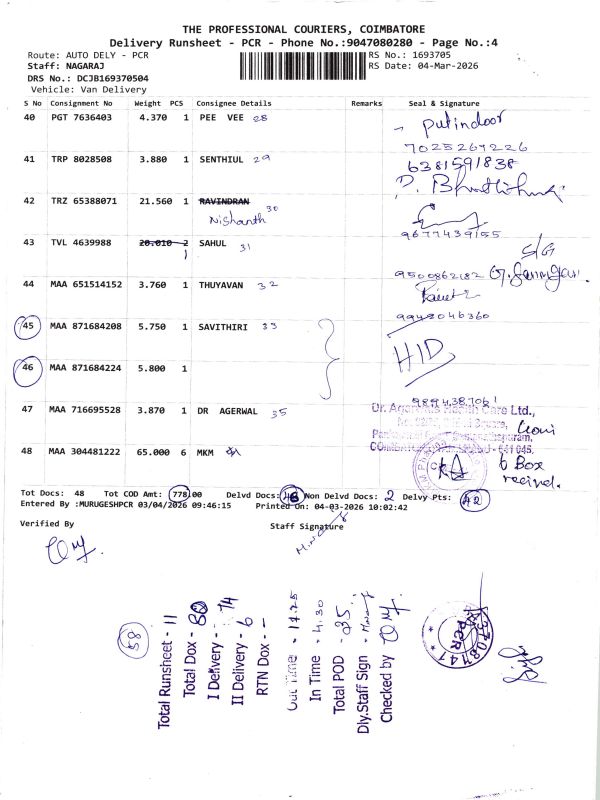 THE PROFESSIONAL COURIERS, COIMBATORE
Delivery Runsheet - PCR - Phone No.:9047080280 - Page No.:4
Route: AUTO DELY - PCR
RS No.: 1693705
Staff: NAGARAJ
RS Date: 04-Mar-2026
DRS No.: DCJB169370504
Vehicle: Van Delivery
S No Consignment No Weight PCS Consignee Details Remarks Seal & Signature
40 PGT 7636403 4.370 1 PEE VEE 28
Putindoor
7025267226
41 TRP 8028508 3.880 1 SENTHIUL 29
6381591838
42 TRZ 65388071 21.560 1 RAVINDRAN 30
Nishanth
9677439155
43 TVL 4639988 20.010 2 SAHUL 31
1
S/G
44 MAA 651514152 3.760 1 THUYAVAN 32
9500862182
9943046360
45 MAA 871684208 5.750 1 SAVITHIRI 33
HID
46 MAA 871684224 5.800 1
47 MAA 716695528 3.870 1 DR AGERWAL 35
Dr. Agarwal's Health Care Ltd.,
48 MAA 304481222 65.000 6 MKM
6 Box
Tot Docs: 48 Tot COD Amt: 778.00 Delvd Docs: 46 Non Delvd Docs: 2 Delvy Pts: 42
Entered By :MURUGESHPCR 03/04/2026 09:46:15 Printed On: 04-03-2026 10:02:42
Verified By Staff Signature
58
Total Runsheet - 11
Total Dox - 80
I Delivery - 74
II Delivery - 6
RTN Dox - -
Out Time -
In Time - 4.30
Total POD - 35
Dly.Staff Sign -
Checked by
PCR